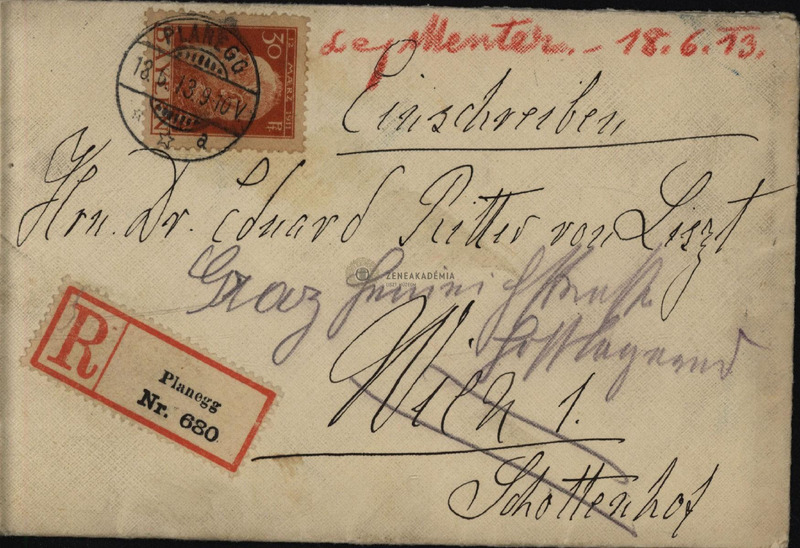 PLANEGG
18.6.13.9-10V.
a
30
12. MÄRZ 1911
PF
Menter. - 18.6.13.
Einschreiben
Hrn. Dr. Eduard Ritter von Liszt
ZENEAKADÉMIA
Graz Heinrichstraße
Postlagernd
Wien 1.
Schottenhof
R
Planegg
Nr. 680